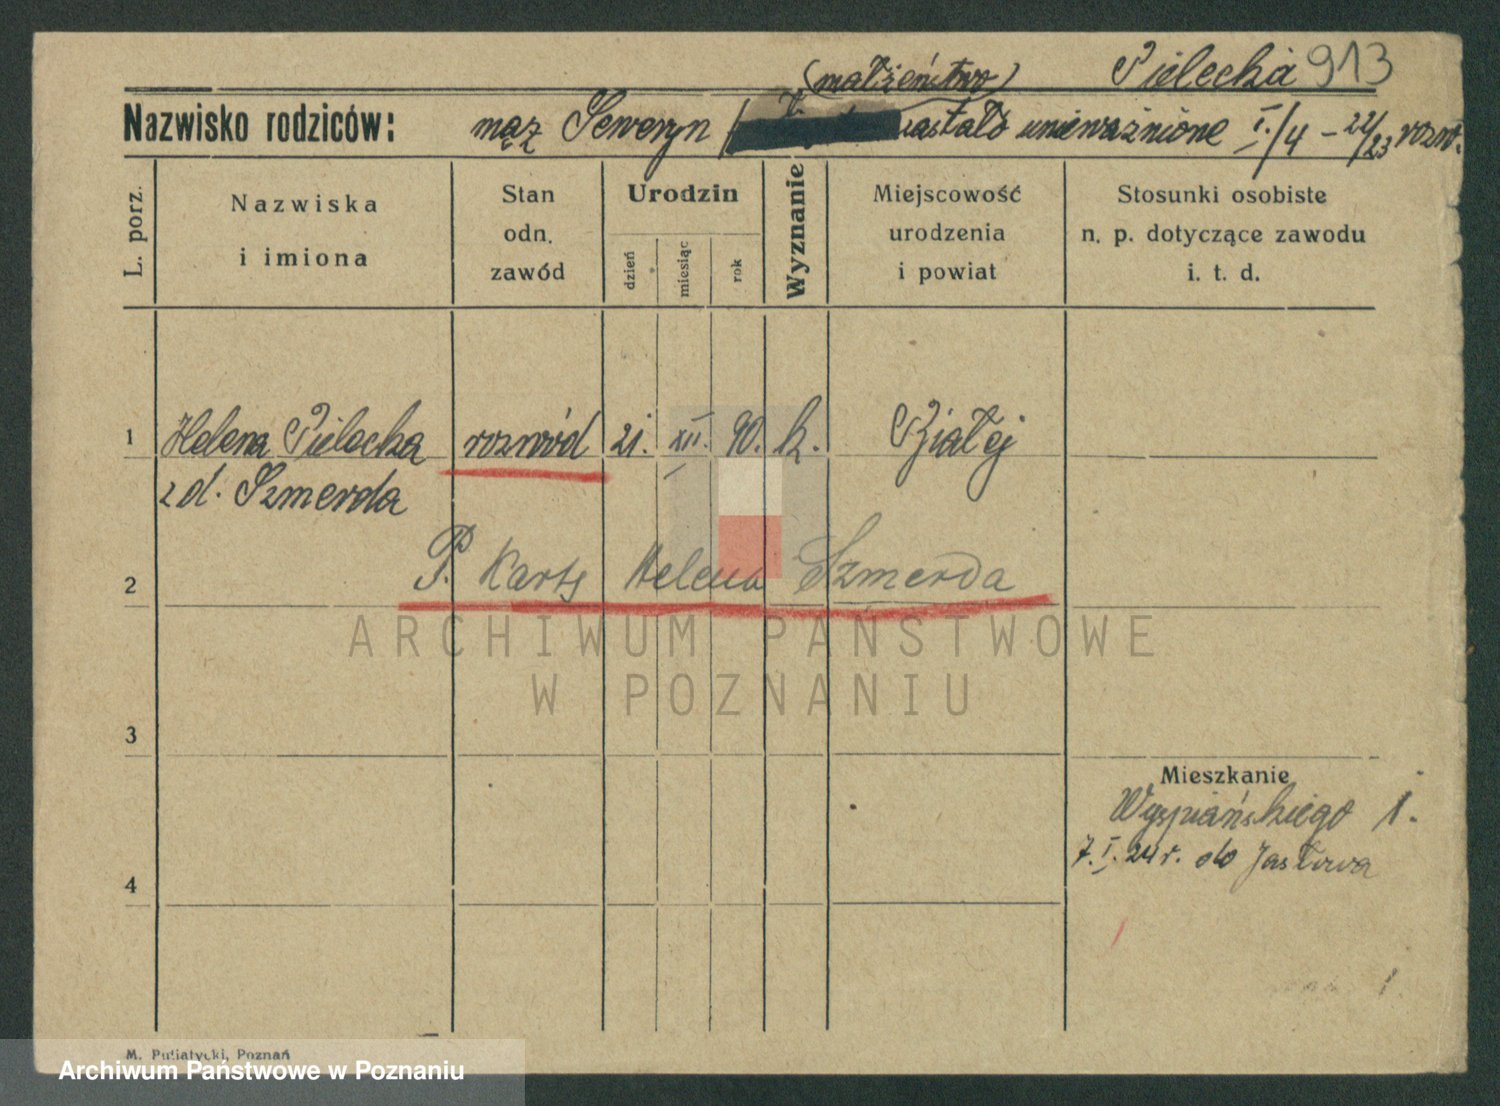 Pielecka 913
(małżeństwo)
Nazwisko rodziców: mąż Seweryn / zostało unieważnione I./4 - 22/23 rozw.
L. porz.
Nazwiska
i imiona
Stan
odn.
zawód
Urodzin
dzień
miesiąc
rok
Wyznanie
Miejscowość
urodzenia
i powiat
Stosunki osobiste
n. p. dotyczące zawodu
i. t. d.
1 Helena Pielecka rozwód 21. XII. 90. k. Białej
z d. Szmerda
2 P. Karty Helena Szmerda
ARCHIWUM PAŃSTWOWE
W POZNANIU
3
Mieszkanie
Wyspiańskiego 1.
7. I. 24 r. do
4
1.
M. Putiatycki, Poznań
Archiwum Państwowe w Poznaniu